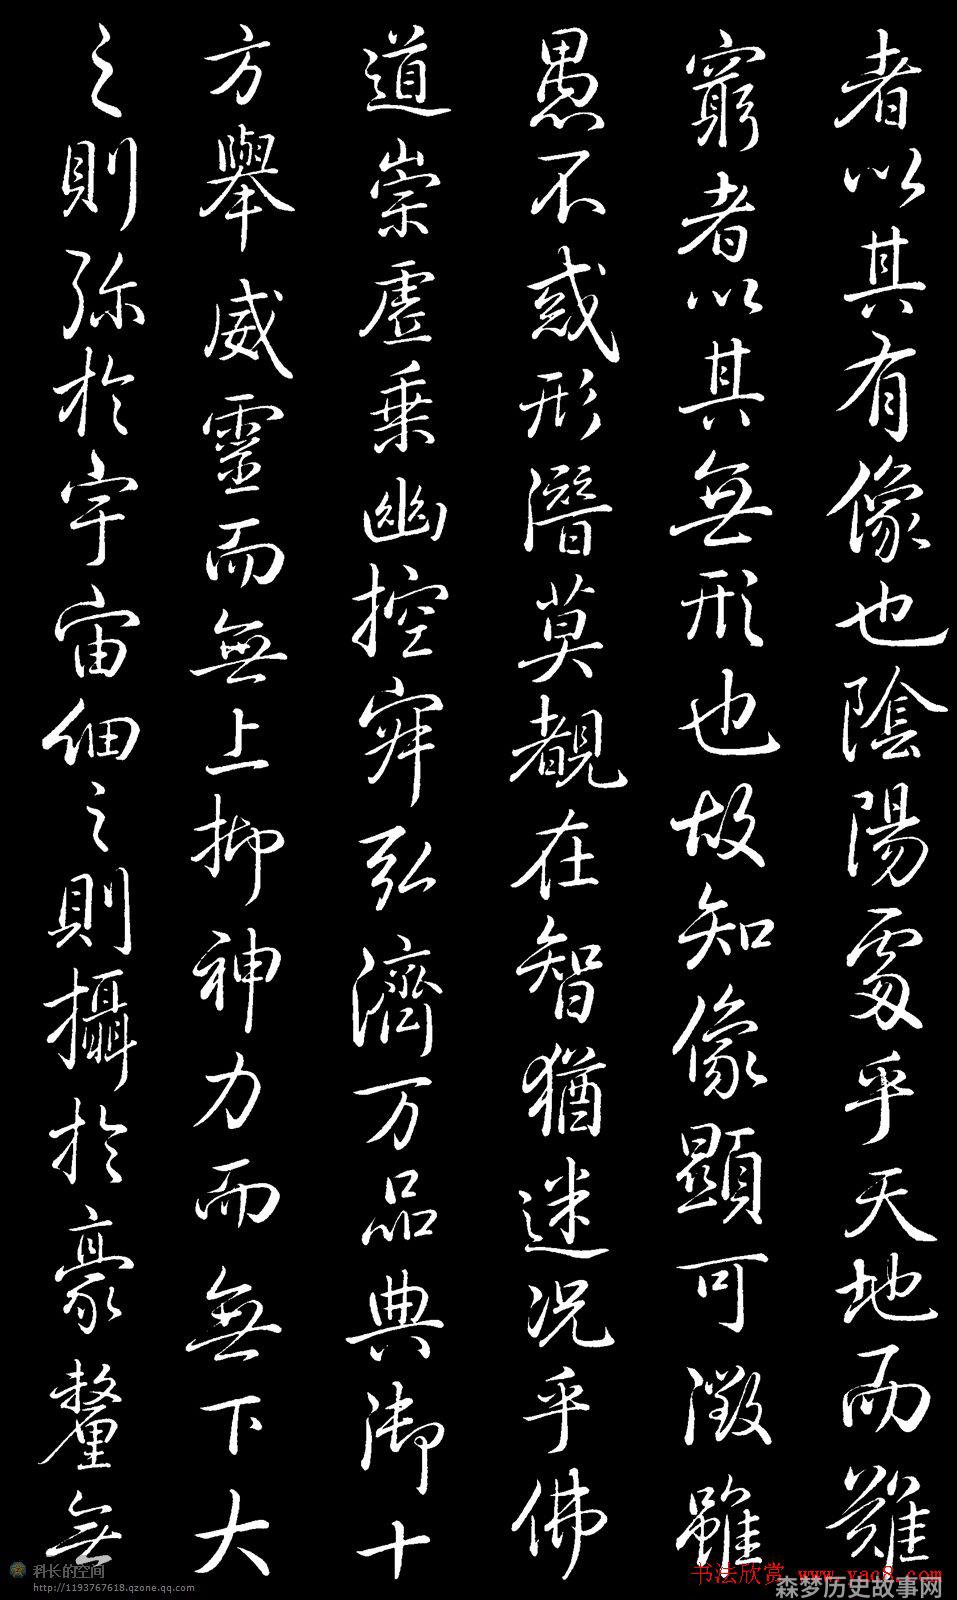 者以其有像也陰陽處乎天地而難
窮者以其無形也故知像顯可徵雖
愚不惑形潛莫覩在智猶迷況乎佛
道崇虛乗幽控寂弘濟万品典御十
方舉威靈而無上抑神力而無下大
之則弥於宇宙細之則攝於豪釐無
科长的空间
http://1193767618.qzone.qq.com
书法欣赏 www.yac8.com
森梦历史故事网